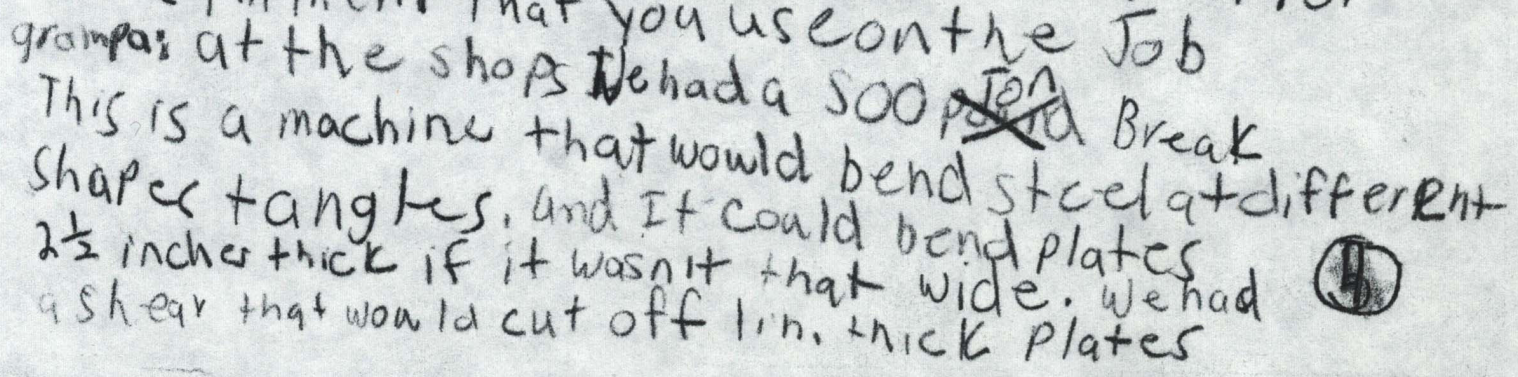 that you use on the Job
grampa: at the shops We had a 500 Ton Break
This is a machine that would bend steel at different
shapes + angles. and It could bend plates
2½ inches thick if it wasn't that wide. We had
a shear that would cut off 1 in. thick Plates
4